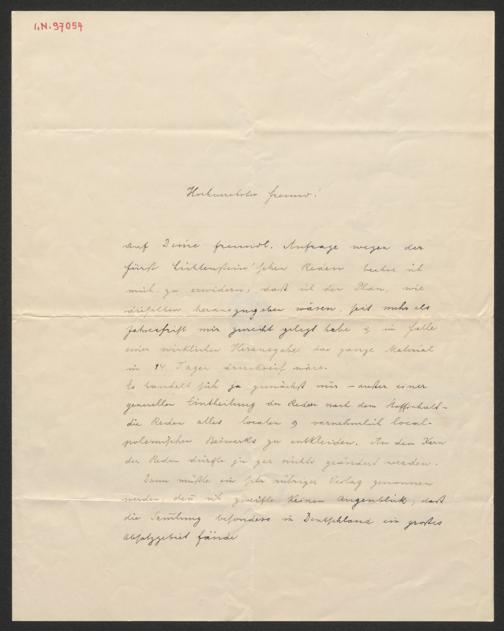 I.N. 97054
Hochverehrter Freund!
Auf Deine freundl. Anfrage wegen der
Fürst Lichtenstein'schen Reden beehre ich
mich zu erwidern, daß ich den Plan, wie
dieselben herauszugeben wären, seit mehr als
Jahresfrist mir zurecht gelegt habe & im Falle
einer wirklichen Herausgabe das ganze Material
in 14 Tagen druckreif wäre.
Es handelt sich ja zunächst nur – außer einer
generellen Eintheilung der Reden nach dem Stoffinhalt –
die Reden alles localen & vornehmlich local-
polemischen Beiwerks zu entkleiden. An dem Kern
der Reden dürfte ja gar nichts geändert werden.
Dann müßte ein sehr rühriger Verlag genommen
werden, denn ich zweifle keinen Augenblick, daß
die Samlung besonders in Deutschland ein großes
Absatzgebiet fände